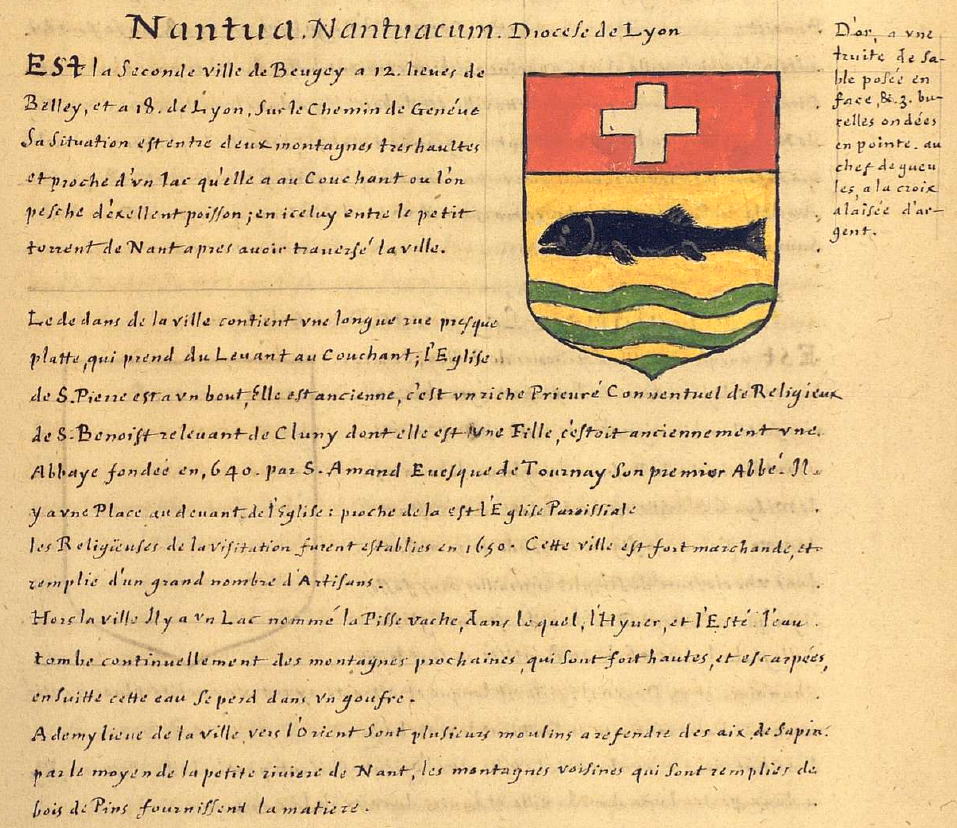 Nantua. Nantuacum. Diocese de Lyon
Est la Seconde ville de Beugey a 12. lieues de
Belley, et a 18. de Lyon, Sur le Chemin de Genéue
Sa Situation est entre deux montagnes treshaultes
et proche d'vn lac qu'elle a au Couchant ou lón
pesche d'éxellent poisson; en iceluy entre le petit
torrent de Nant apres auoir trauersé la ville.
Le de dans de la ville contient vne longue rue presque
platte, qui prend du Leuant au Couchant; l'Eglise
de S. Pierre est a vn bout, Elle est ancienne, c'est vn riche Prieuré Conuentuel de Religieux
de S. Benoist releuant de Cluny dont elle est Vne Fille, c'estoit anciennement vne.
Abbaye fondeé en, 640. par S. Amand Euesque de Tournay Son premier Abbé. Il.
y a vne Place au deuant de l'Eglise : proche de la est l'Eglise Paroissiale
les Religieuses de la visitation furent establies en 1650. Cette ville est fort marchande, et
remplie d'un grand nombre d'Artisans.
Hors la ville Il y a vn Lac nommé la Pisse vache, dans le quel, l'Hyuer, et l'Esté l'eau
tombe continuellement des montagnes prochaines, qui Sont fort hautes, et escarpées,
ensuitte cette eau Se perd dans vn goufre.
A demy lieue de la ville vers l'Orient Sont plusieurs moulins a refendre des aix, de Sapin.
par le moyen de la petite riuiere de Nant, les montagnes voisines qui Sont remplies de
bois de Pins fournissent la matiere.
D'or, a vne
truite de Sa-
ble posée en
face, & 3. bu-
relles ondées
en pointe. au
chef de gueu
les, a la croix
alaisée d'ar-
gent.